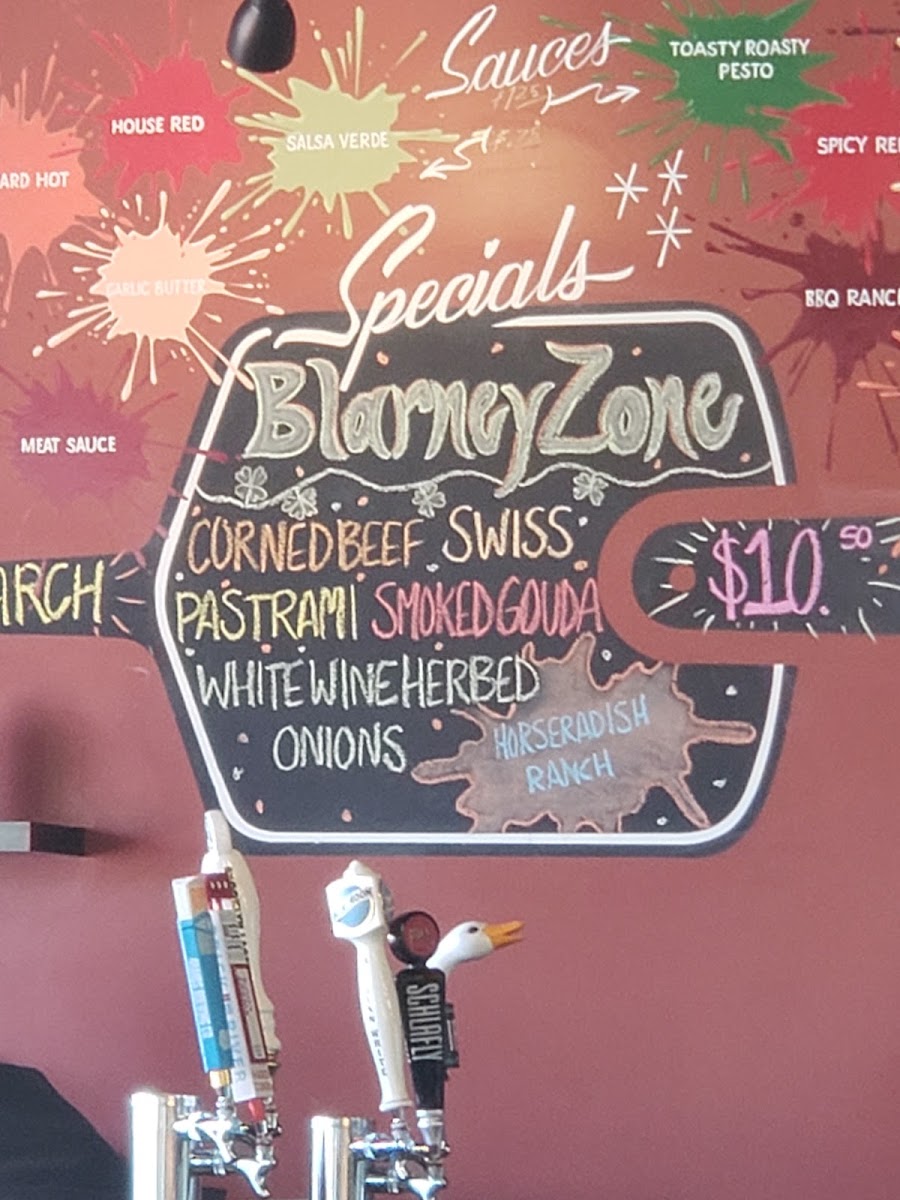 Sauces
$1.25
$.75
TOASTY ROASTY
PESTO
HOUSE RED
SALSA VERDE
SPICY RE
ARD HOT
GARLIC BUTTER
BBQ RANC
MEAT SAUCE
Specials
Blarney Zone
CORNED BEEF SWISS
PASTRAMI SMOKED GOUDA
WHITE WINE HERBED
ONIONS
HORSERADISH
RANCH
ARCH
$10.50
SCHLAFLY